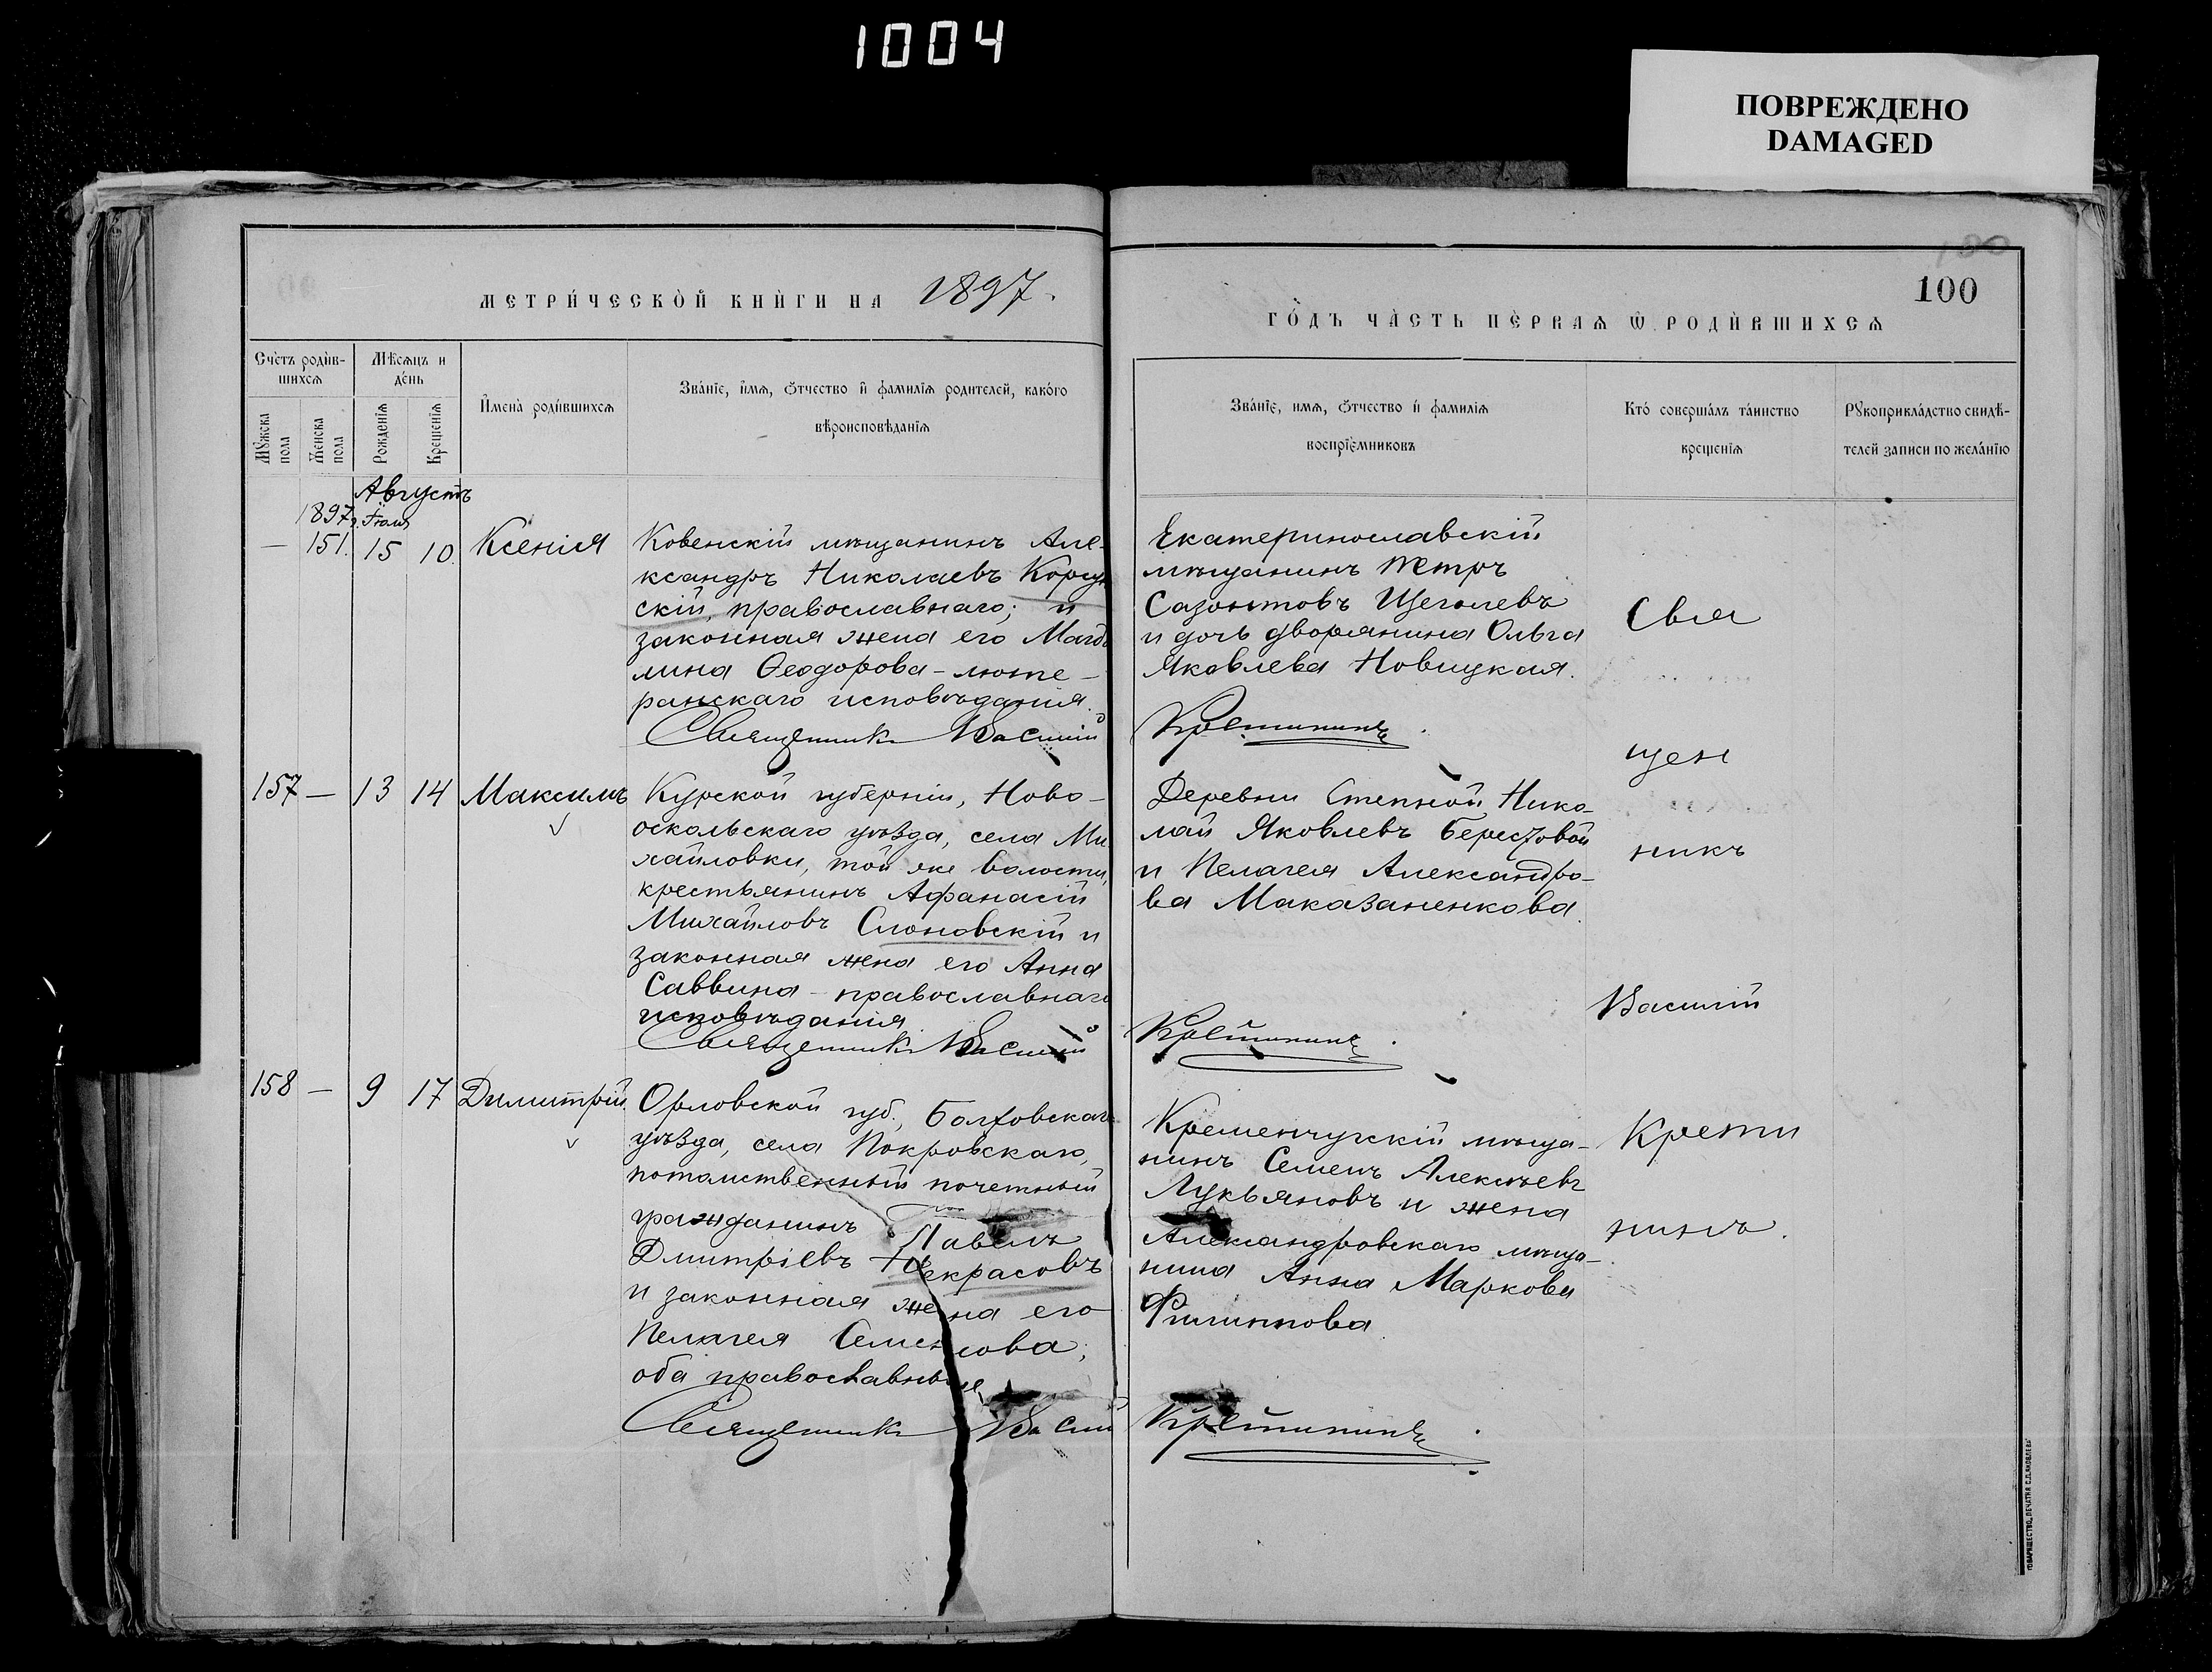 1004
ПОВРЕЖДЕНО
DAMAGED
МЕТРИ́ЧЕСКОЙ КНИ́ГИ НА 1897.
100
ГО́ДЪ ЧА́СТЬ ПЕ́РВАѦ Ѿ РОДИ́ВШИХСѦ
Сче́тъ роди́в-
шихсѧ
Мѣ́сѧцъ и
де́нь
И҆мена̀ роди́вшихсѧ
Зва́нїе, и҆́мѧ, ѻ҆́тчество и҆ фамилїѧ родителей, како́го
вѣроисповѣданїѧ
Мꙋжска
пола
Женска
пола
Рожденїѧ
Крещенїѧ
Зва́нїе, имѧ, ѻ҆́тчество и҆ фамилїѧ
воспрїе́мниковъ
Кто́ соверша́лъ та́инство
крещенїѧ
Рꙋкоприкла́дство свидѣ́-
телей записи по жела́нїю
Августъ
1897 г. Іюля
— 151. 15 10. Ксенія
Ковенскій мѣщанинъ Але-
ксандръ Николаевъ
скій, православнаго; и
законная жена его
лина Ѳеодорова - люте-
ранскаго исповѣданія.
Священникъ Василій
Екатеринославскій
мѣщанинъ Петръ
Сазонтовъ Щеголевъ
и дочь дворянина Ольга
Яковлева Новицкая.
Кретининъ
Свя
щен
никъ
Василій
Крети
нинъ.
157 — 13 14 Максимъ
Курской губерніи, Ново-
оскольскаго уѣзда, села Ми
хайловки, той же волости,
крестьянинъ Афанасій
Михайловъ Слоновскій и
законная жена его Анна
Саввина - православнаго
исповѣданія
Священникъ Василій
Деревни Степной Нико-
лай Яковлевъ Берестовой
и Пелагея Александро-
ва Маказаненкова.
Кретининъ
158 — 9 17 Димитрій.
Орловской губ., Болховскаго
уѣзда, села Покровскаго,
потомственный почетный
гражданинъ Павелъ
Дмитріевъ Некрасовъ
и законная жена его
Пелагея Семенова;
оба православные
Священникъ Васи
Кременчугскій мѣща-
нинъ Семенъ Алексѣевъ
Лукьяновъ и жена
Александровскаго мѣща-
нина Анна Маркова
Филиппова
Кретининъ
ТОВАРИЩЕСТВО „ПЕЧАТНЯ С.П.ЯКОВЛЕВА“